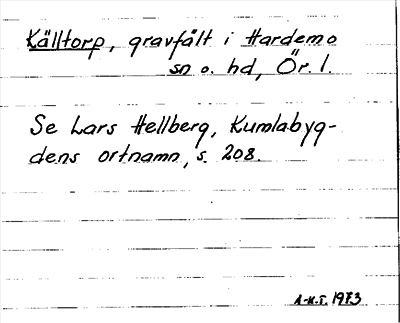 Källtorp, gravfält i Hardemo
sn o. hd, Ör. l.
Se Lars Hellberg, Kumlabyg-
dens ortnamn, s. 208.
A-M.S. 1973